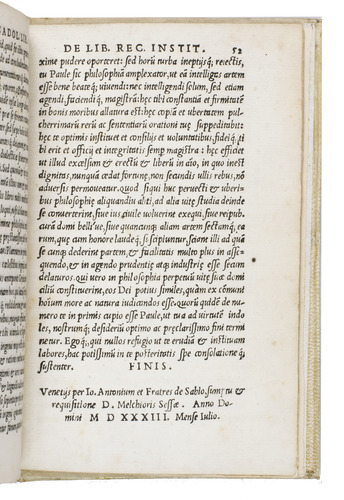 DE LIB. REC. INSTIT. 52
xime pudere oporteret: sed horũ turba ineptijsq́; reiectis,
tu Paule sic philosophiã amplexator, ut eã intelligas artem
esse bene beateq́; uiuendi: nec intelligendi solum, sed etiam
agendi, faciendiq́;, magistrã: hęc tibi constantiã et firmitatẽ
in bonis moribus allatura est: hęc copiã et ubertatem pul-
cherrimarũ rerũ ac sententiarũ orationi tuę suppeditabit:
hęc te optimis institutis et consilijs et uoluntatibus, fideiq́; ti
bi erit et officij et integritatis semp magistra: hęc efficiet
ut illud excelsum & erectũ & liberũ in aĩo, in quo inest
dignitas, nunquã cedat fortunę, non secundis ullis rebus, nõ
aduersis permoueatur. Quod siqui huc peruecti & uberi-
bus philosophię aliquandiu alti, ad alia uitę studia deinde
se conuerterint, siue ius ciuile uoluerint exequi, siue reipub.
curã domi bellíue, siue quancunq; aliam artem sectamq́, ea
rum, quę cum honore laudeq́; suscipiuntur, sciant illi ad quã
se cunq; dederint partem, & facilitatis multo plus in asse-
quendo, & in agendo prudentię atq; industrię esse secum
delaturos. qui uero in philosophia perpetuũ uitę suę domi
cilιũ constituerint, eos Dei potius similes, quàm ex cõmuni
hoĩum more ac natura iudicandos esse. quorũ quidẽ de nu
mero te in primis cupio esse Paule, ut tua ad uirtutẽ indo
les, nostrumq́; desideriũ optimo ac pręclarissimo fini termi
netur. Egoq́;, qui nullos refugio ut te erudiã & instituam
labores, hac potissimũ in te posteritatis spe consolationeq́;
sustenter. FINIS.
Venetijs per Io. Antonium et Fratres de Sabio, sumptu &
requisitione D. Melchioris Sessæ. Anno Do-
mini M D XXXIII. Mense Iulio.